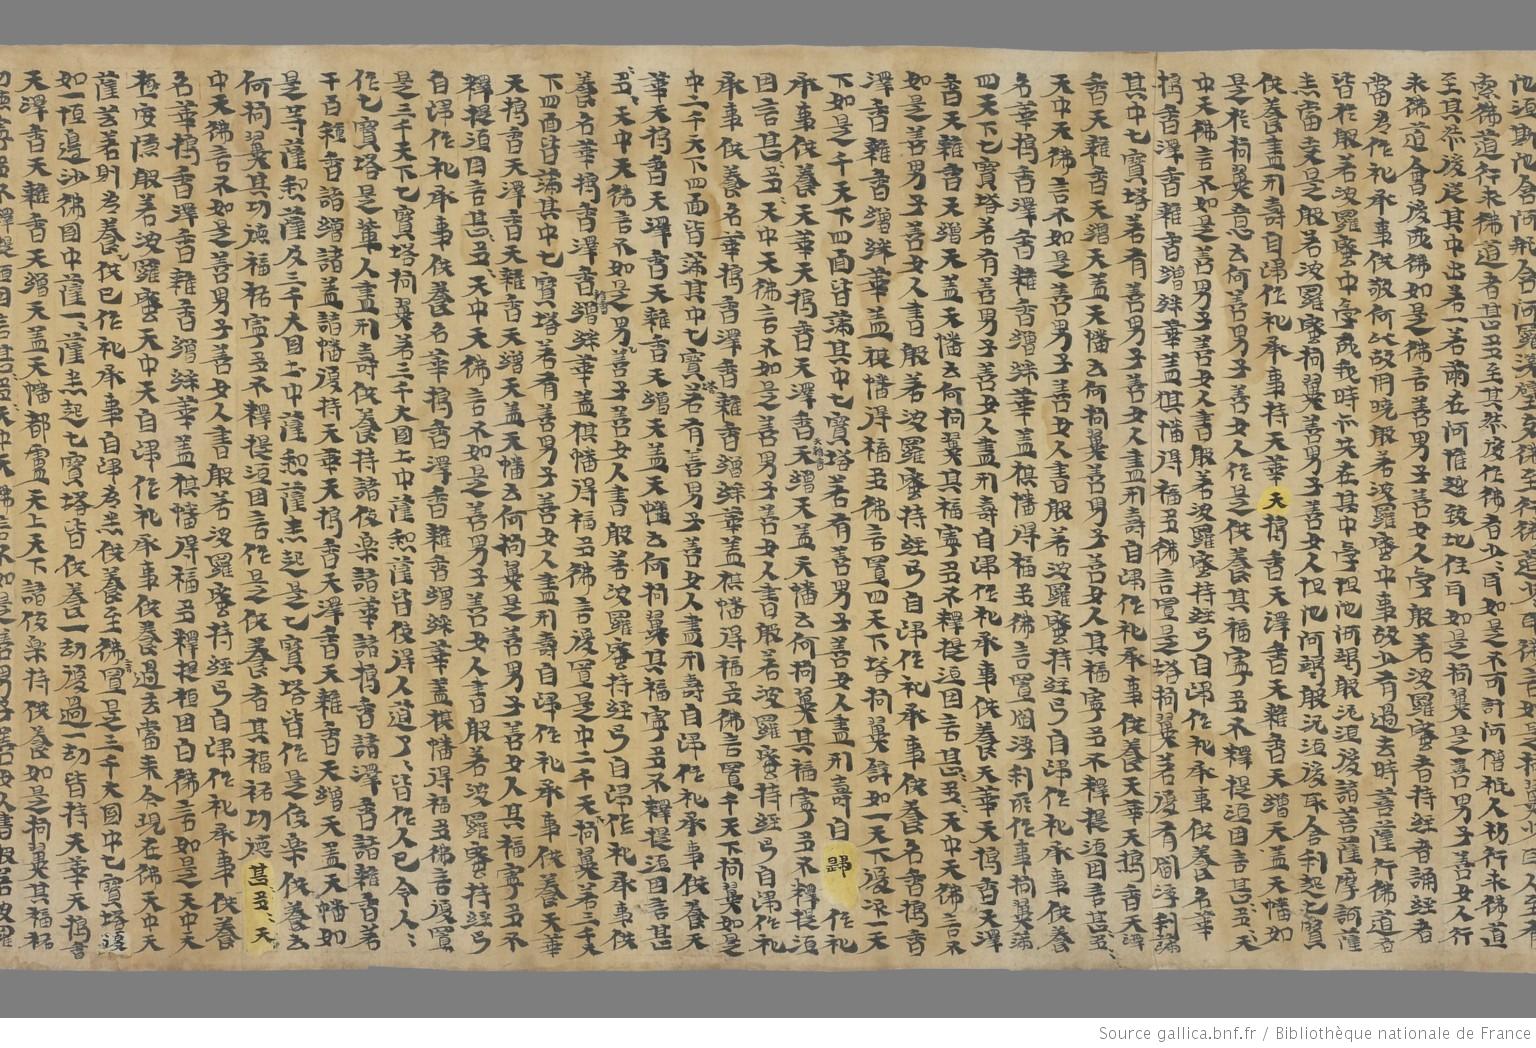 索佛道行求佛道者甚多至其然後作佛者少少耳如是不可計阿僧祇人初行求佛道
至其然後從其中出若一若兩在阿惟越致地住耳如是拘翼是善男子善女人行
求佛道會後成佛如是佛言善男子善女人學般若波羅蜜者持經者誦經者
當為作礼承事供敬何以故用曉般若波羅蜜中事故少有過去時菩薩行佛道者
皆於般若波羅蜜中學成我時亦共在其中學怛他阿竭般泥洹後諸菩薩摩訶薩
悉當索是般若波羅蜜拘翼善男子善女人怛他阿竭般泥洹後取舍利起七寶
供養盡形壽自歸作礼承事持天華天搗香天澤香天雜香天繒天盖天幡如
是於拘翼意云何善男子善女人作是供養其福寧多不釋提洹因言甚多甚多天
中天佛言不如是善男子善女人書般若波羅蜜持經弓自歸作礼承事供養名華
搗香澤香雜香繒綵華盖棋幡得福多佛言置是塔拘翼若復有閻浮利滿
其中七寶塔若有善男子善女人盡形壽自歸作礼承事供養天華天搗香天澤
香天雜香天繒天盖天幡云何拘翼善男子善女人其福寧多不釋提洹因言甚多甚多
天中天佛言不如是善男子善女人書般若波羅蜜持經弓自歸作礼承事供養
名華搗香澤香雜香繒綵華盖棋幡得福多佛言置閻浮利所作事拘翼滿
四天下七寶塔若有善男子善女人盡形壽自歸作礼承事供養天華天搗香天澤
香天雜香天繒天盖天幡云何拘翼其福寧多不釋提洹因言甚多甚多天中天佛言不
如是善男子善女人書般若波羅蜜持經弓自歸作礼承事供養名香搗香
澤香雜香繒綵華盖棋幡得福多佛言置四天下塔拘翼辟如一天下復次一天
下如是千天下四面皆滿其中七寶塔若有善男子善女人盡形壽自歸作礼
承事供養天華天搗香天澤香天雜香天繒天盖天幡云何拘翼其福寧多不釋提洹
因言甚多甚多天中天佛言不如是善男子善女人書般若波羅蜜持經弓自歸作礼
承事供養名華搗香澤香雜香繒綵華盖棋幡得福多佛言置千天下拘翼如是
中二千天下四面皆滿其中七寶塔若有善男子善女人盡形壽自歸作礼承事供養天
華天搗香天澤香天雜香天繒天盖天幡云何拘翼其福寧多不釋提洹因言甚
多甚多天中天佛言不如是男善子善女人書般若波羅蜜持經弓自歸作礼承事供
養名華搗香澤香雜香繒綵華盖棋幡得福多佛言復置是中二千天下拘翼若三千天
下四面皆滿其中七寶塔若有善男子善女人盡形壽自歸作礼承事供養天華
天搗香天澤香天雜香天繒天盖天幡云何拘翼是善男子善女人其福寧多不
釋提洹因言甚多甚多天中天佛言不如是善男子善女人書般若波羅蜜持經弓
自歸作礼承事供養名華搗香澤香雜香繒綵華盖棋幡得福多佛言復置
是三千天下七寶塔拘翼若三千大國土中薩和薩皆使得人道了了皆作人已令人人
作七寶塔是輩人盡形壽供養持諸伎樂諸華諸搗香諸澤香諸雜香若
千百種香諸繒諸盖諸幡復持天華天搗香天澤香天雜香天繒天盖天幡如
是等薩和薩及三千大國土中薩和薩悉起是七寶塔皆作是伎樂供養云
何拘翼其功德福祐寧多不釋提洹因言作是供養者其福祐功德甚多甚多天
中天佛言不如是善男子善女人書般若波羅蜜持經弓自歸作礼承事供養
名華搗香澤香雜香繒綵華盖棋幡得福多釋提桓因白佛言如是天中天
極安隱般若波羅蜜天中天自歸作礼承事供養過去當來今現在佛天中天
薩芸若則為養供已作礼承事自歸為悉供養至佛言置是三千大國中七寶塔復
如一恒邊沙佛國中薩一一薩悉起七寶塔皆供養一劫復過一劫皆持天華天搗香
天澤香天雜香天繒天盖天幡都盧天上天下諸伎樂持供養如是拘翼其福祐
Source gallica.bnf.fr / Bibliothèque nationale de France